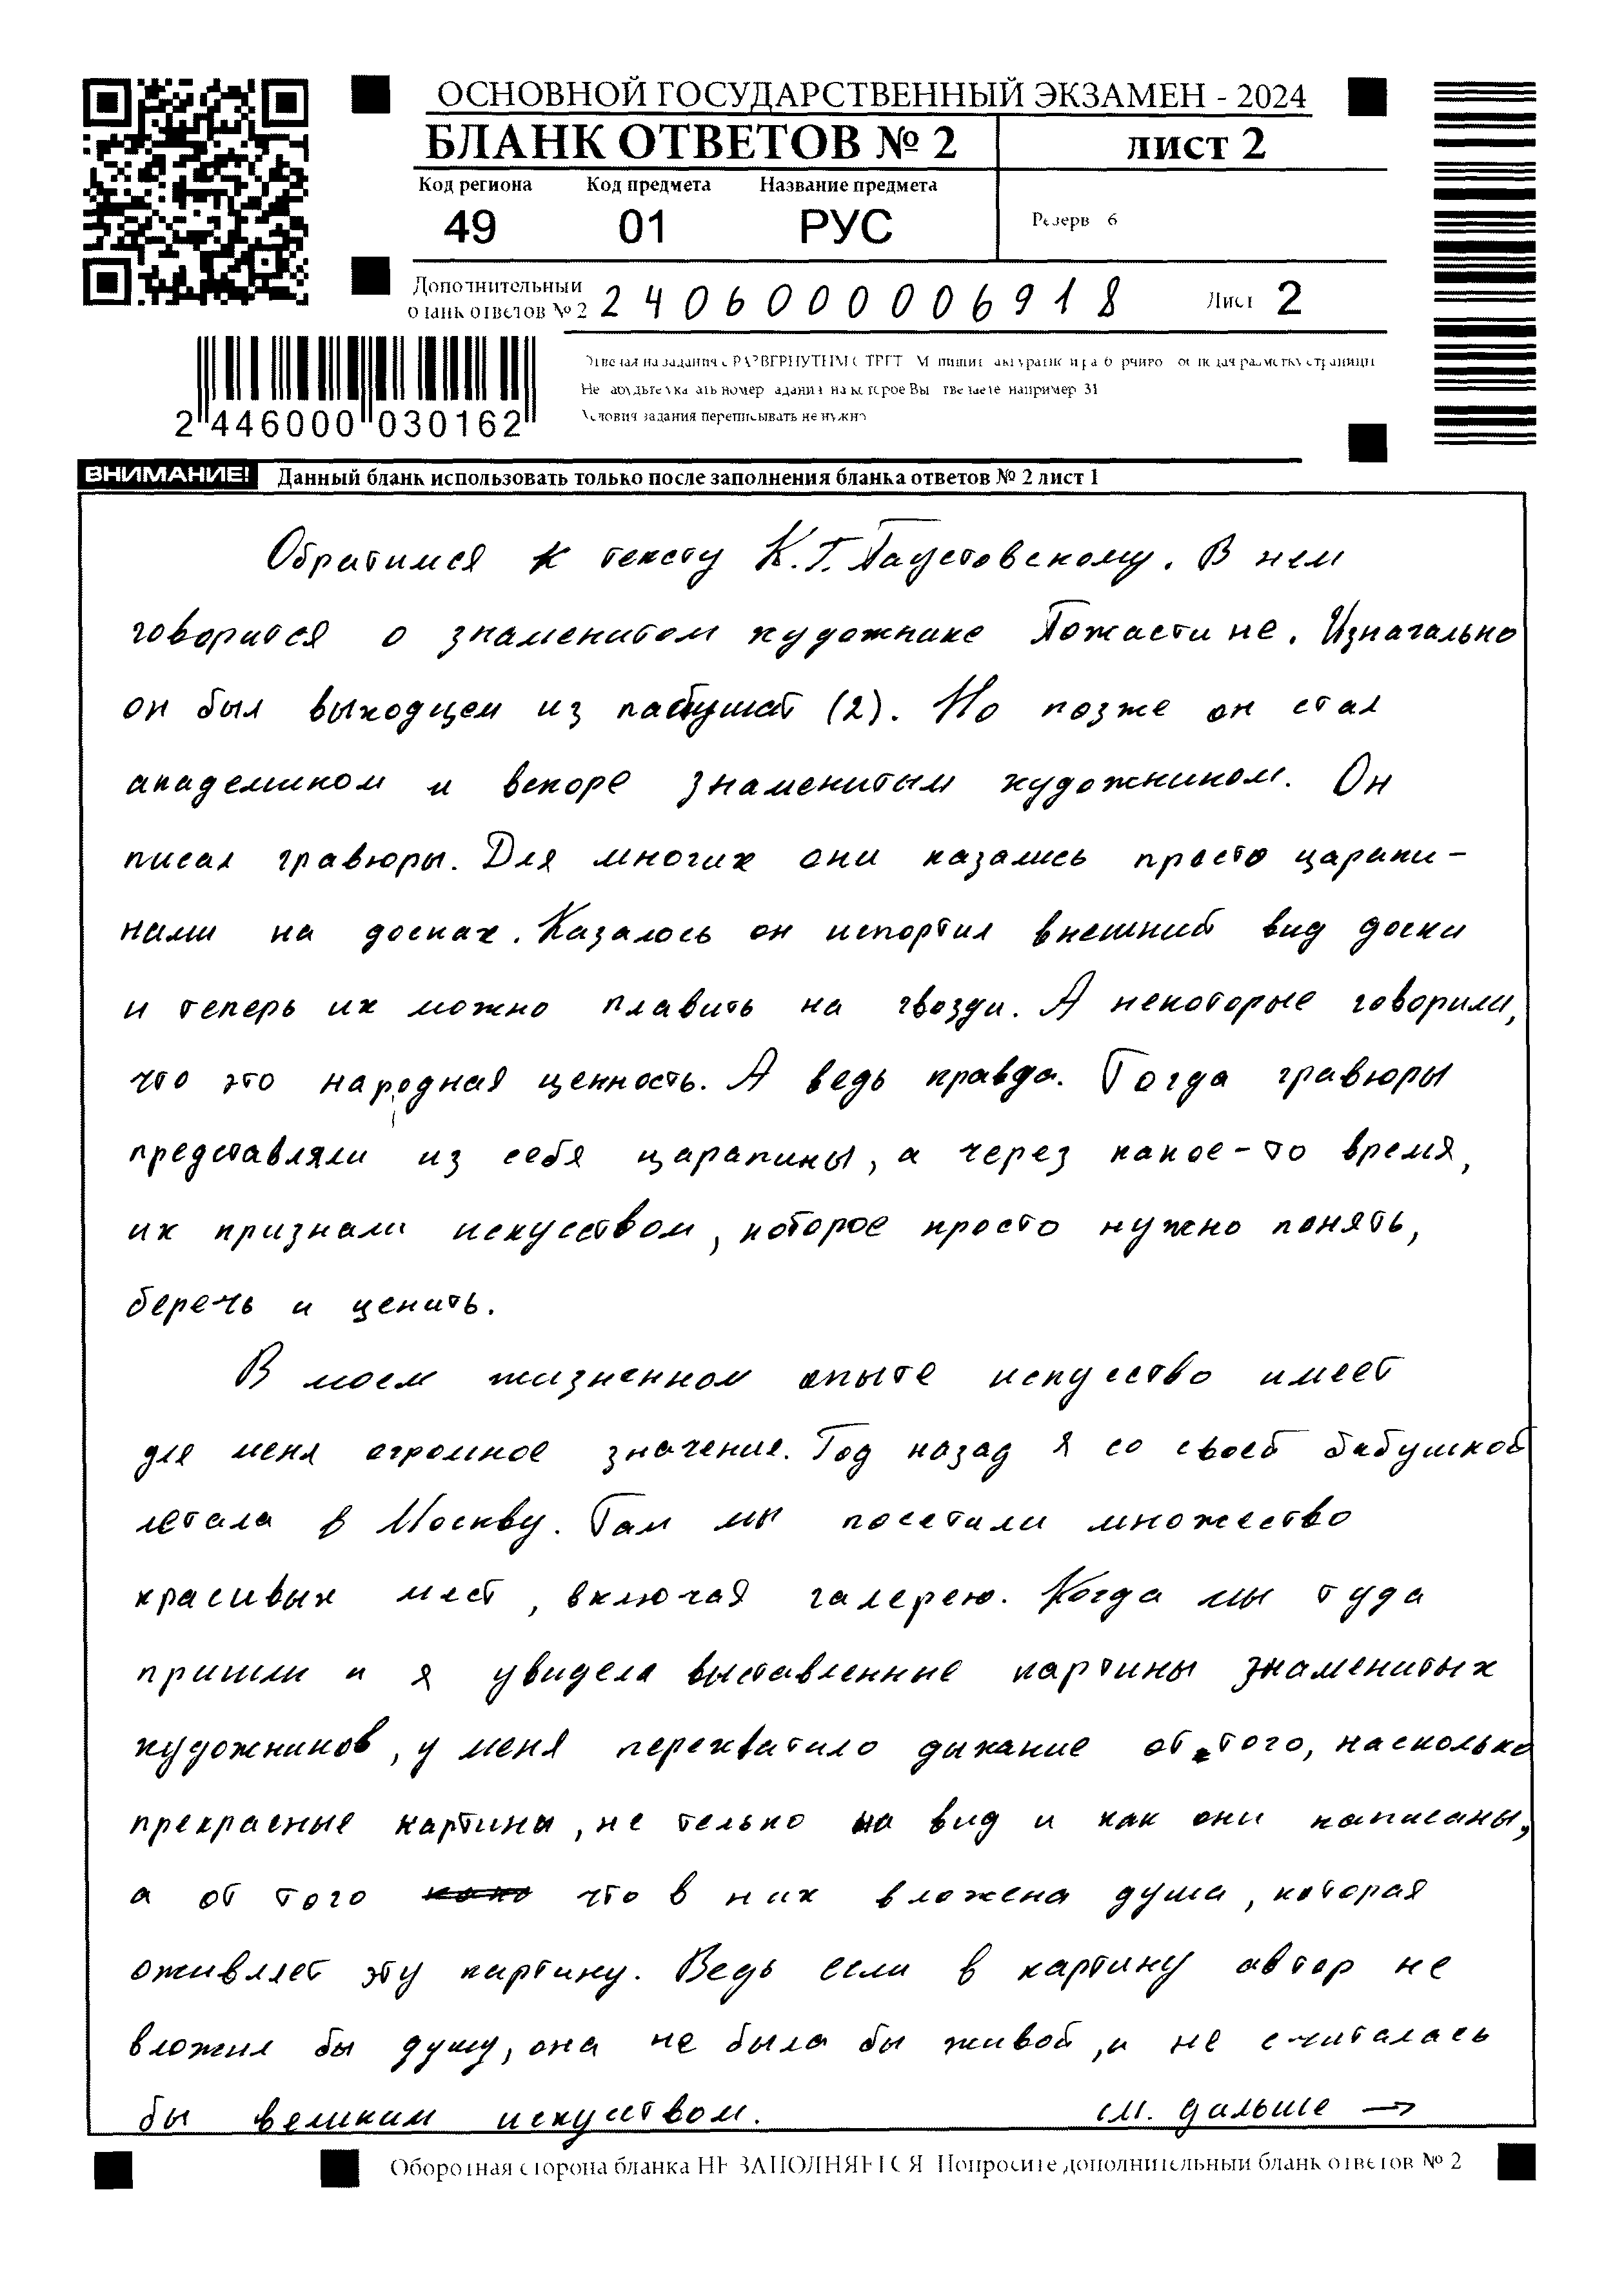 ОСНОВНОЙ ГОСУДАРСТВЕННЫЙ ЭКЗАМЕН - 2024
БЛАНК ОТВЕТОВ № 2
лист 2
Код региона Код предмета Название предмета
49 01 РУС
Резерв 6
Дополнительный
бланк ответов № 2
2406000006918
Лист 2
2 446000 030162
ВНИМАНИЕ! Данный бланк использовать только после заполнения бланка ответов № 2 лист 1
Обратимся к тексту К.Г. Паустовскому. В нем
говорится о знаменитом художнике Пожастине. Изначально
он был выходцем из пастушат (2). Но позже он стал
академиком и вскоре знаменитым художником. Он
писал гравюры. Для многих они казались просто царапи-
нами на досках. Казалось он испортил внешний вид доски
и теперь их можно плавить на гвозди. А некоторые говорили,
что это народная ценность. А ведь правда. Тогда гравюры
представляли из себя царапины, а через какое-то время,
их признали искусством, которое просто нужно понять,
беречь и ценить.
В моем жизненном опыте искусство имеет
для меня огромное значение. Год назад я со своей бабушкой
летала в Москву. Там мы посетили множество
красивых мест, включая галерею. Когда мы туда
пришли и я увидела выставленные картины знаменитых
художников, у меня перехватило дыхание от того, насколько
прекрасные картины, не только на вид и как они написаны,
а от того что в них вложена душа, которая
оживляет эту картину. Ведь если в картину автор не
вложил бы душу, она не была бы живой, и не считалась
бы великим искусством. см. дальше →
Оборотная сторона бланка НЕ ЗАПОЛНЯЕТСЯ Попросите дополнительный бланк ответов № 2